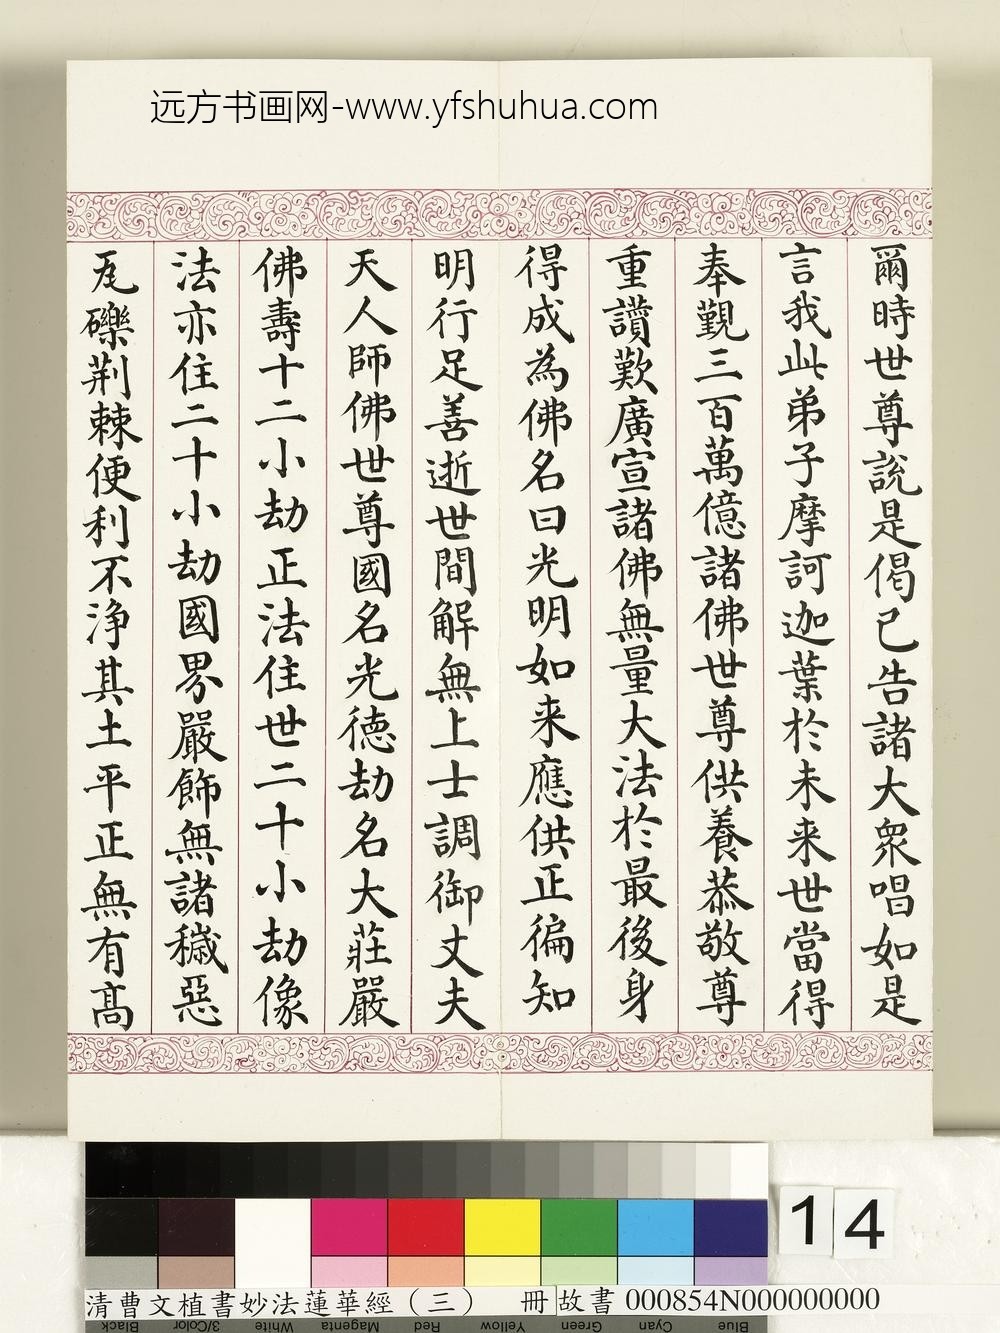 远方书画网-www.yfshuhua.com
爾時世尊說是偈已告諸大衆唱如是
言我此弟子摩訶迦葉於未来世當得
奉覲三百萬億諸佛世尊供養恭敬尊
重讚歎廣宣諸佛無量大法於最後身
得成為佛名曰光明如来應供正徧知
明行足善逝世間解無上士調御丈夫
天人師佛世尊國名光德劫名大莊嚴
佛壽十二小劫正法住世二十小劫像
法亦住二十小劫國界嚴飾無諸穢惡
瓦礫荆棘便利不淨其土平正無有髙
14
清曹文植書妙法蓮華經（三） 冊 故書 000854N000000000
Black 3/Color White Magenta Red Yellow Green Cyan Blue